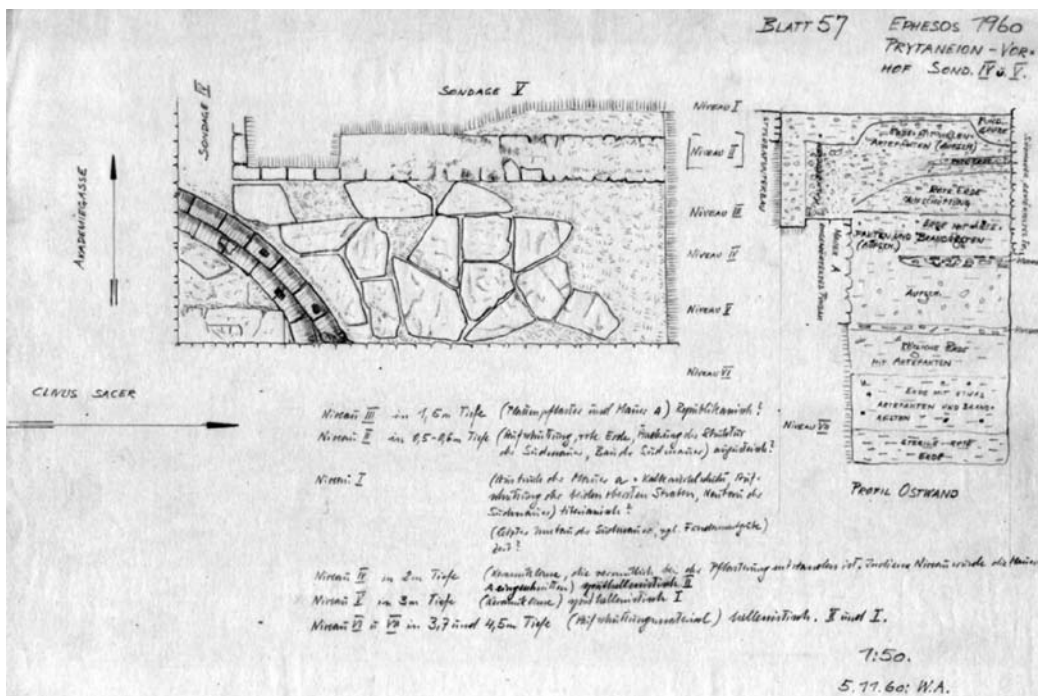 BLATT 57 EPHESOS 1960
PRYTANEION - VOR-
HOF SOND. IV u. V.
SONDAGE IV
SONDAGE V
AKADEMIEGASSE
CLIVUS SACER
NIVEAU I
NIVEAU II
NIVEAU III
NIVEAU IV
NIVEAU V
NIVEAU VI
NIVEAU VII
ARTEFAKTEN (AUFSCH)
ROTE ERDE
ANSCHÜTTUNG
MAUER A
(AUFSCH)
AUFSCH.
MIT ARTEFAKTEN
ERDE MIT ETWAS
ARTEFAKTEN UND BRAND-
RESTEN
STERILE ROTE
ERDE
PROFIL OSTWAND
Niveau III in 1,6m Tiefe (Plattenpflaster und Mauer A) Republikanisch?
Niveau II in 0,5-0,6m Tiefe (Aufschüttung, rote Erde, der Struktur
der Südmauer, Bau der Südmauer) augusteisch?
Niveau I (der Mauer a + Auf-
schüttung der beiden obersten Straten, der
Südmauer) tiberianisch?
(letzter Umbau der Südmauer, vgl. Fundamentgrube)
Zeit?
Niveau IV in 2m Tiefe (die vermutlich bei der Pflasterung entstanden ist, in dieses Niveau wurde die Mauer
A eingeschnitten) späthellenistisch II
Niveau V in 3m Tiefe späthellenistisch I
Niveau VI u VII in 3,7 und 4,5m Tiefe (Aufschüttungsmaterial) hellenistisch. II und I.
1:50.
5.11.60; W.A.